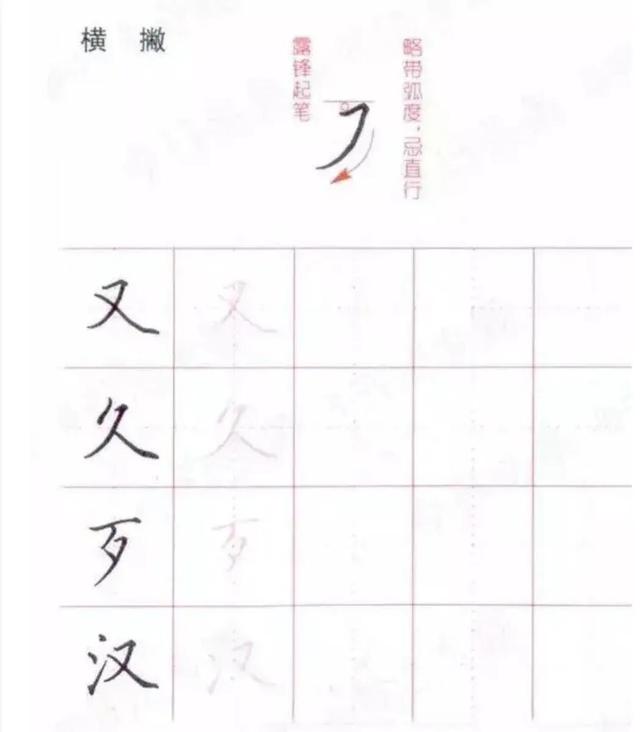 横 撇
露锋起笔
略带弧度，忌直行
又 又
久 久
歹 歹
汉 汉